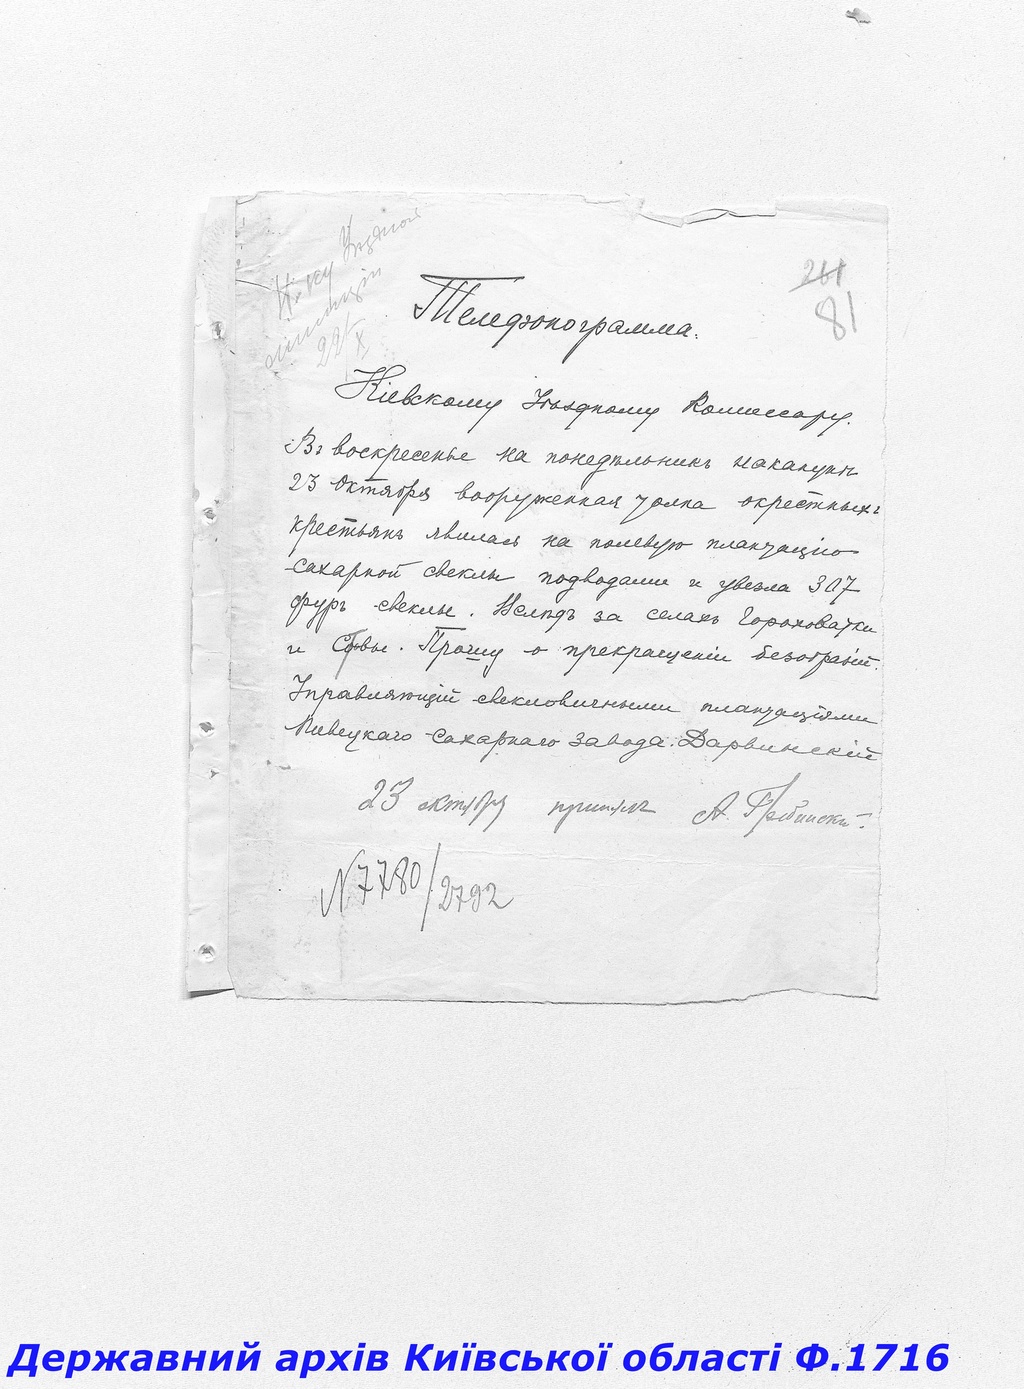 Н-ку Уѣздной
милиціи
22/X
261
81
Телефонограмма.
Кіевскому Уѣздному Комиссару.
Въ воскресенье на понедѣльникъ наканунѣ
23 Октября вооруженная толпа окрестныхъ
крестьянъ явилась на полевую плантацію
сахарной свеклы подводами и увезла 307
фуръ свеклы. за селахъ Гороховатки
и . Прошу о прекращеніи
Управляющій свекловичными плантаціями
сахарнаго завода. Дарвинскій
23 октября принялъ А.
N 7780/2792
Державний архів Київської області Ф.1716